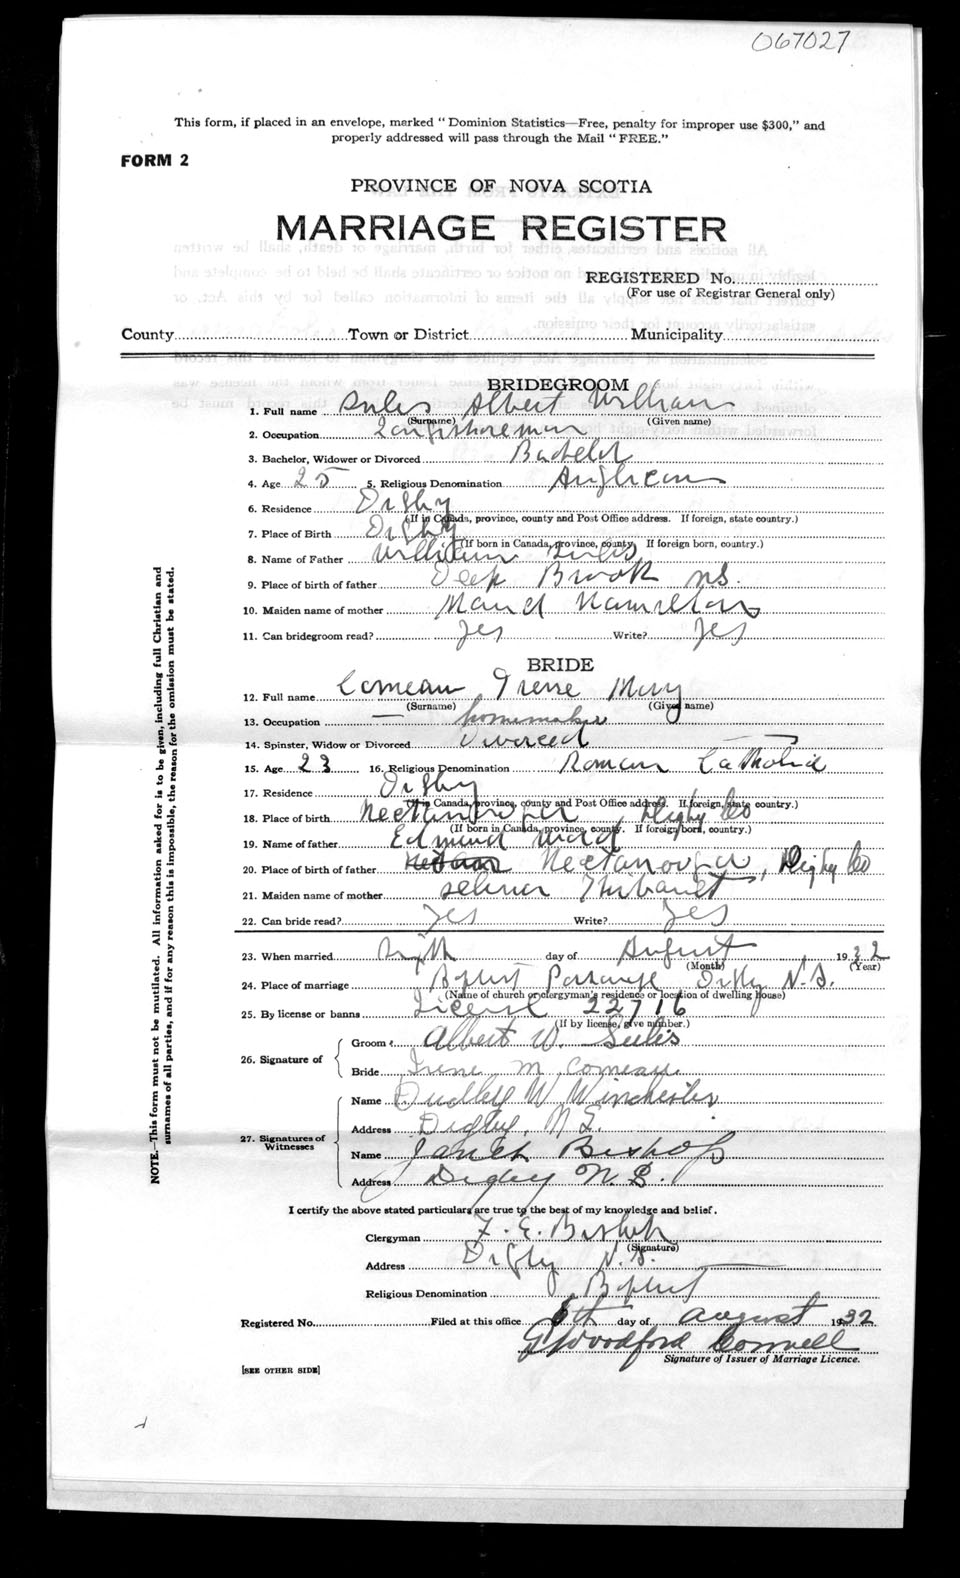 067027
This form, if placed in an envelope, marked "Dominion Statistics—Free, penalty for improper use $300," and
properly addressed will pass through the Mail "FREE."
FORM 2
PROVINCE OF NOVA SCOTIA
MARRIAGE REGISTER
REGISTERED No.
(For use of Registrar General only)
County Town or District Municipality
BRIDEGROOM
1. Full name Sulis Albert William
(Surname) (Given name)
2. Occupation Longshoreman
3. Bachelor, Widower or Divorced Bachelor
4. Age 25 5. Religious Denomination Anglican
6. Residence Digby
(If in Canada, province, county and Post Office address. If foreign, state country.)
7. Place of Birth Digby
(If born in Canada, province, county. If foreign born, country.)
8. Name of Father William Sulis
9. Place of birth of father Deep Brook NS.
10. Maiden name of mother Maud Hamilton
11. Can bridegroom read? Yes Write? Yes
BRIDE
12. Full name Comeau Irene Mary
(Surname) (Given name)
13. Occupation — homemaker
14. Spinster, Widow or Divorced Divorced
15. Age 23 16. Religious Denomination Roman Catholic
17. Residence Digby
(If in Canada, province, county and Post Office address. If foreign, state country.)
18. Place of birth Digby Co
(If born in Canada, province, county. If foreign born, country.)
19. Name of father Edmund
20. Place of birth of father Nectanooga, Digby Co
21. Maiden name of mother Thibault
22. Can bride read? Yes Write? Yes
23. When married day of August 1932
(Month) (Year)
24. Place of marriage Baptist Parsonage Digby N.S.
(Name of church or clergyman's residence or location of dwelling house)
25. By license or banns License 22716
(If by license, give number.)
26. Signature of
Groom Albert W. Sulis
Bride Irene M Comeau
27. Signatures of Witnesses
Name Dudley W Winchester
Address Digby, N.S.
Name Janet Bishop
Address Digby N.S.
I certify the above stated particulars are true to the best of my knowledge and belief.
Clergyman F. E. Bishop
(Signature)
Address Digby N.S.
Religious Denomination Baptist
Registered No. Filed at this office 6th day of August 1932
Woodford Connell
Signature of Issuer of Marriage Licence.
[SEE OTHER SIDE]
NOTE.—This form must not be mutilated. All information asked for is to be given, including full Christian and
surnames of all parties, and if for any reason this is impossible, the reason for the omission must be stated.